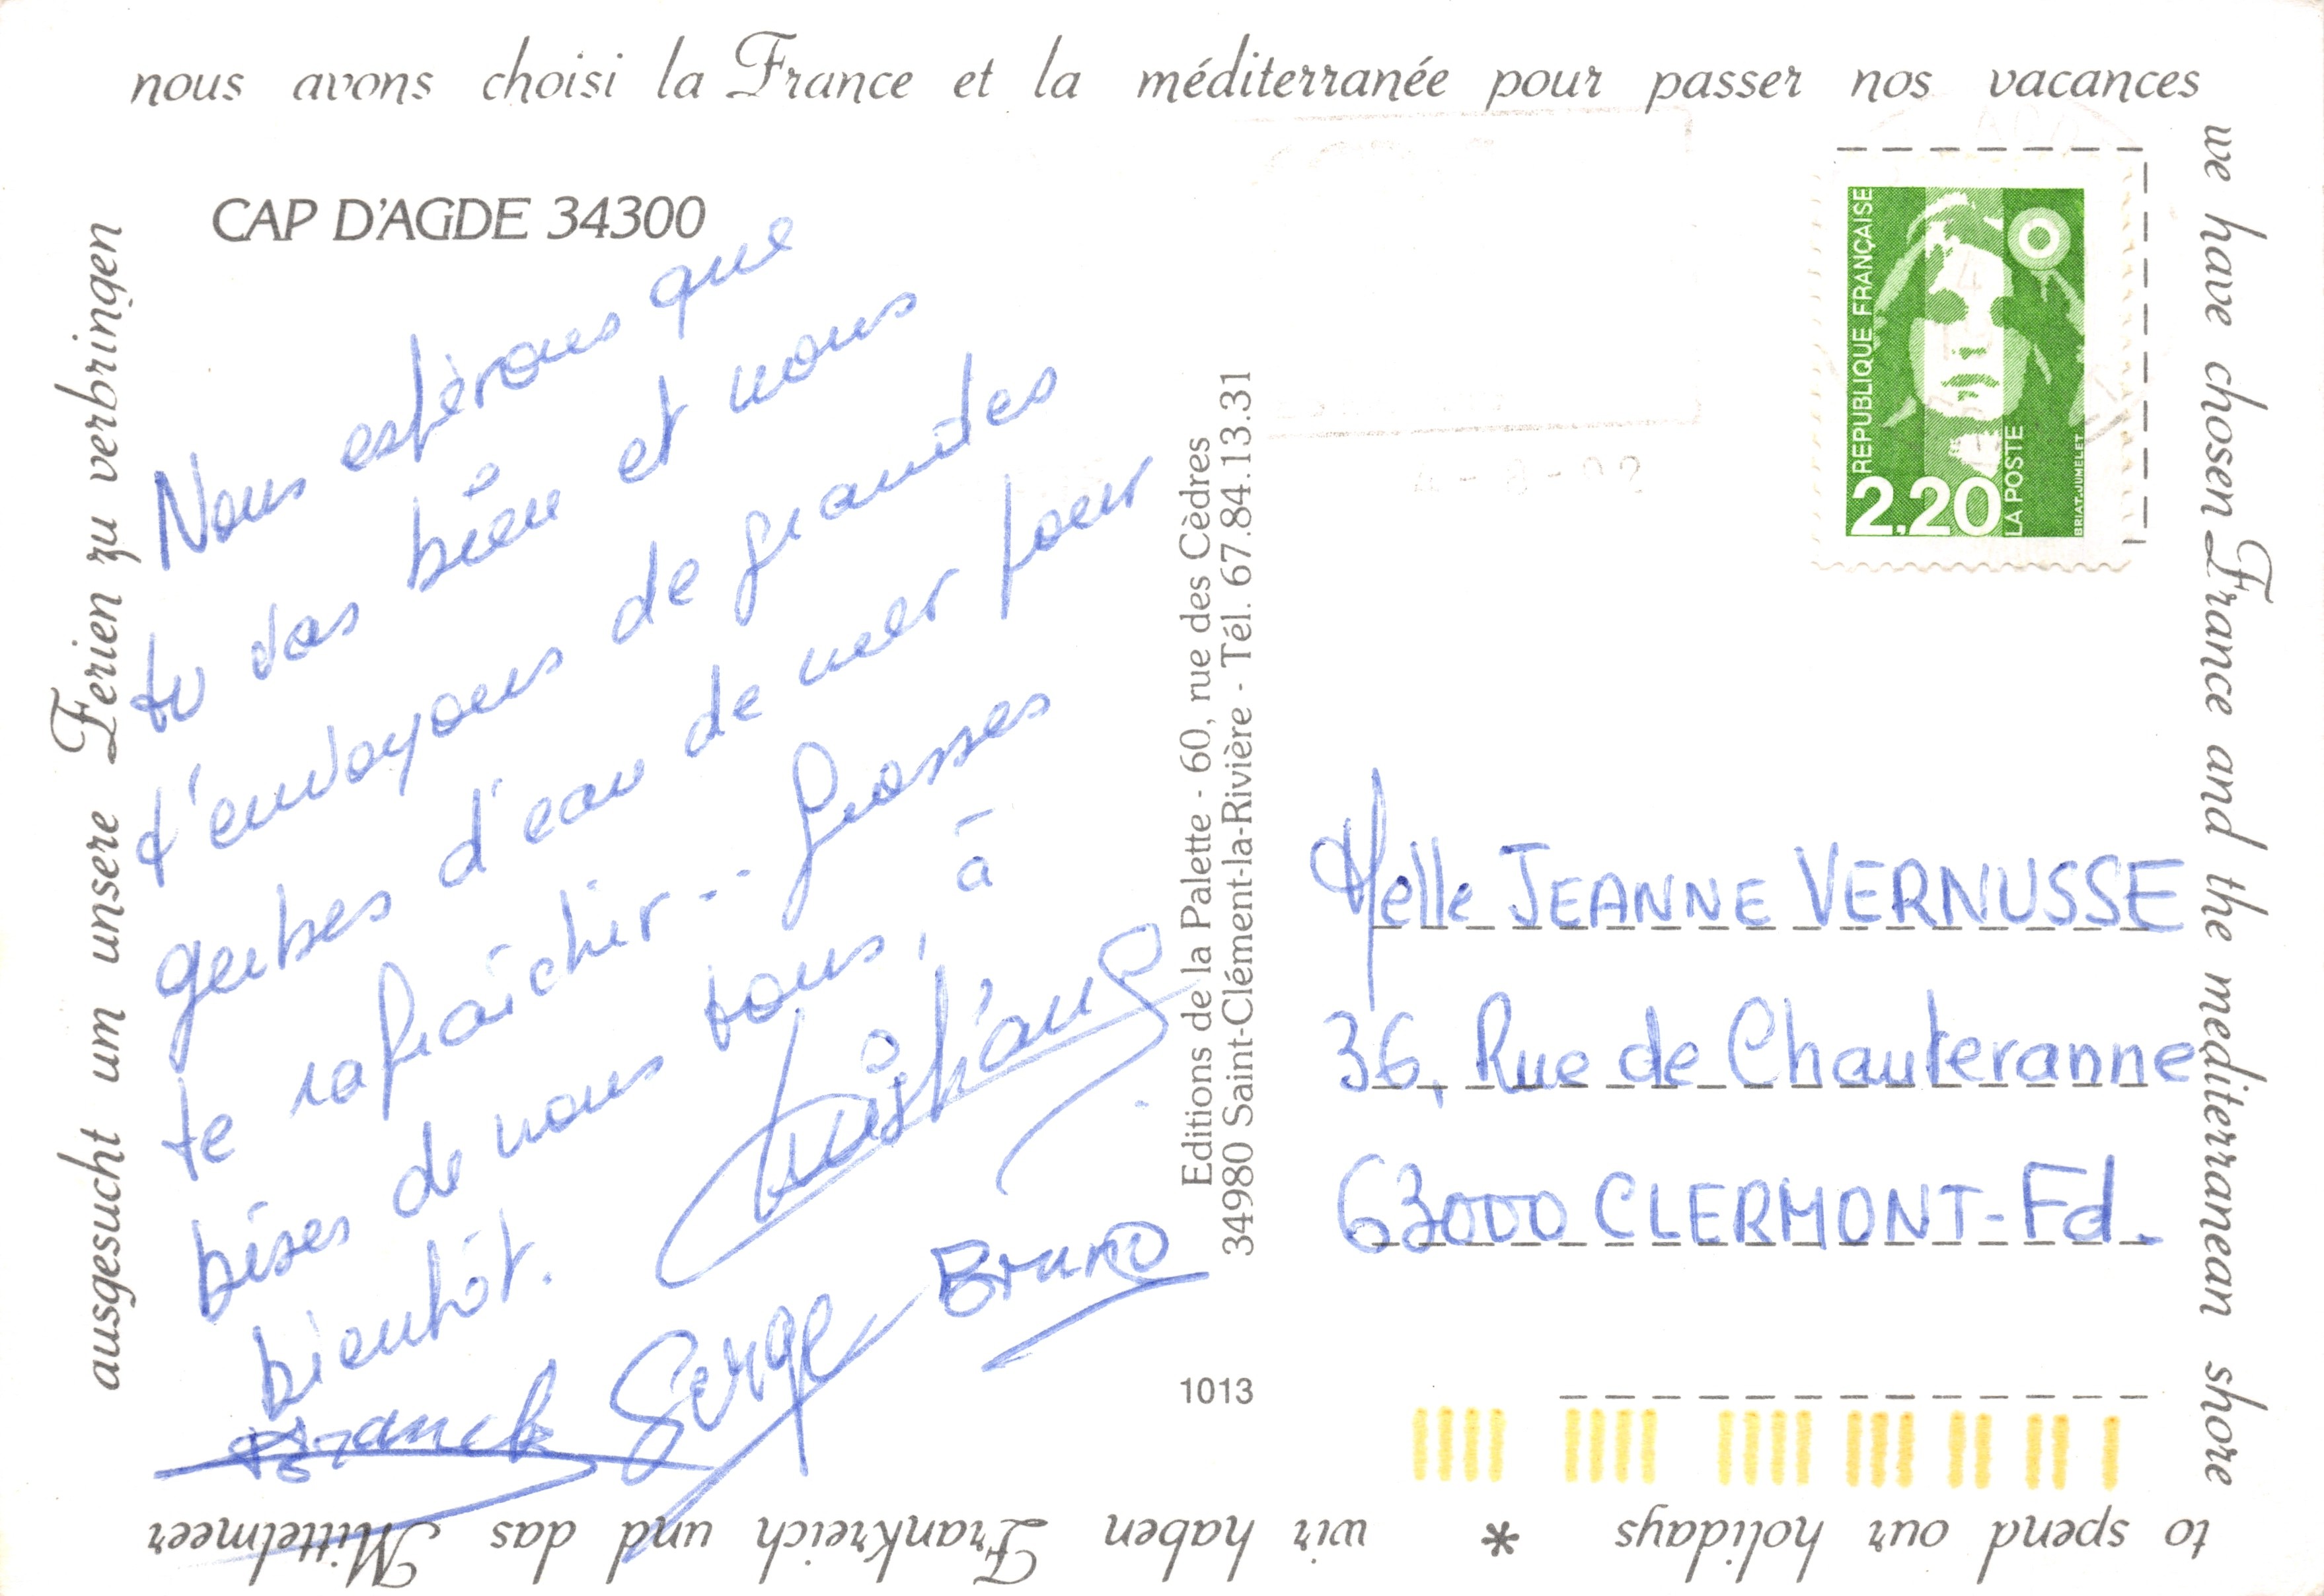 nous avons choisi la France et la méditerranée pour passer nos vacances
we have chosen France and the mediterranean shore
to spend our holidays * wir haben Frankreich und das Mittelmeer
ausgesucht um unsere Ferien zu verbringen
CAP D'AGDE 34300
Nous espérons que
tu vas bien et nous
t'envoyons de grandes
gerbes d'eau de mer pour
te rafraîchir... Grosses
bises de nous tous, à
bientôt.
Christiane
Franck Serge Bruno
Editions de la Palette - 60, rue des Cèdres
34980 Saint-Clément-la-Rivière - Tél. 67.84.13.31
1013
REPUBLIQUE FRANÇAISE
2,20
LA POSTE
BRIAT.JUMELET
Melle JEANNE VERNUSSE
36, Rue de Chanteranne
63000 CLERMONT-Fd.